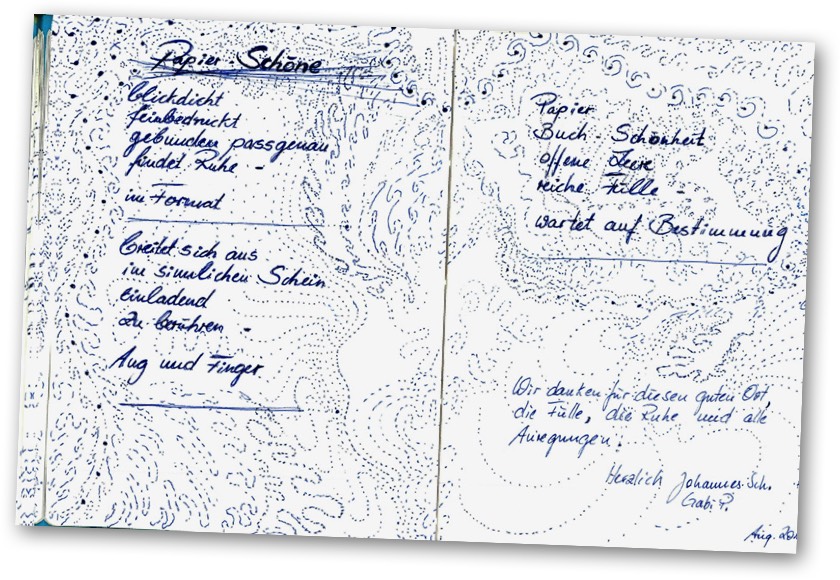 Papier-Schöne
blickdicht
feinbedruckt
gebunden passgenau
findet Ruhe -
im Format
breitet sich aus
im sinnlichen Schein
einladend
zu berühren -
Aug und Finger
Papier
Buch-Schönheit
offene Leere
reiche Fülle -
wartet auf Bestimmung
Wir danken für diesen guten Ort,
die Fülle, die Ruhe und alle
Anregungen.
Herzlich Johannes Sch.
Gabi P.
Aug.